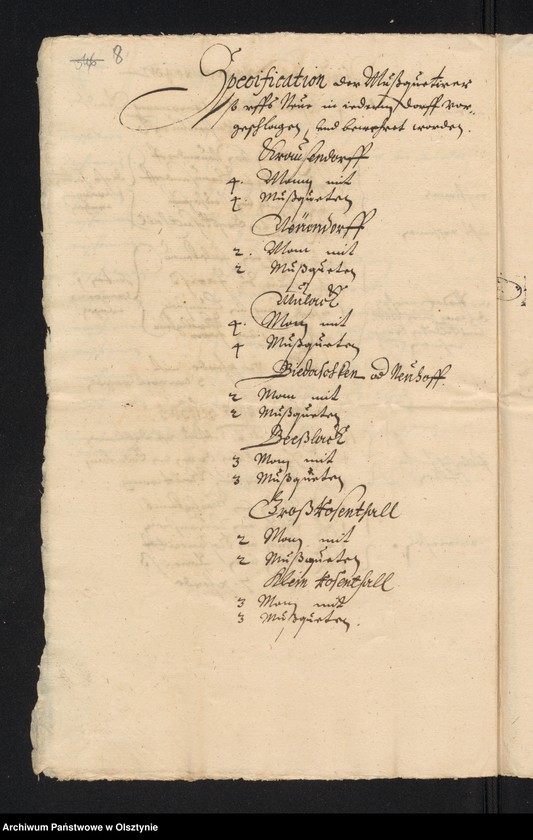 546 8
Specification der Mußquetirer
so uffs Neue in iederm dorff vor-
geschlagen, und bewehret worden.
Krausendorff
4. Mann mit
4. Mußqueten
Neüendorff
2. Mann mit
2 Mußqueten
4. Mann mit
4 Mußqueten
Biedaschken od Neuhoff.
2 Mann mit
2 Mußqueten
Beeßlack
3 Mann mit
3 Mußqueten
Groß Rosenthall
2 Mann mit
2 Mußqueten
Klein Rosenthall
3 Mann mit
3 Mußqueten.
Archiwum Państwowe w Olsztynie